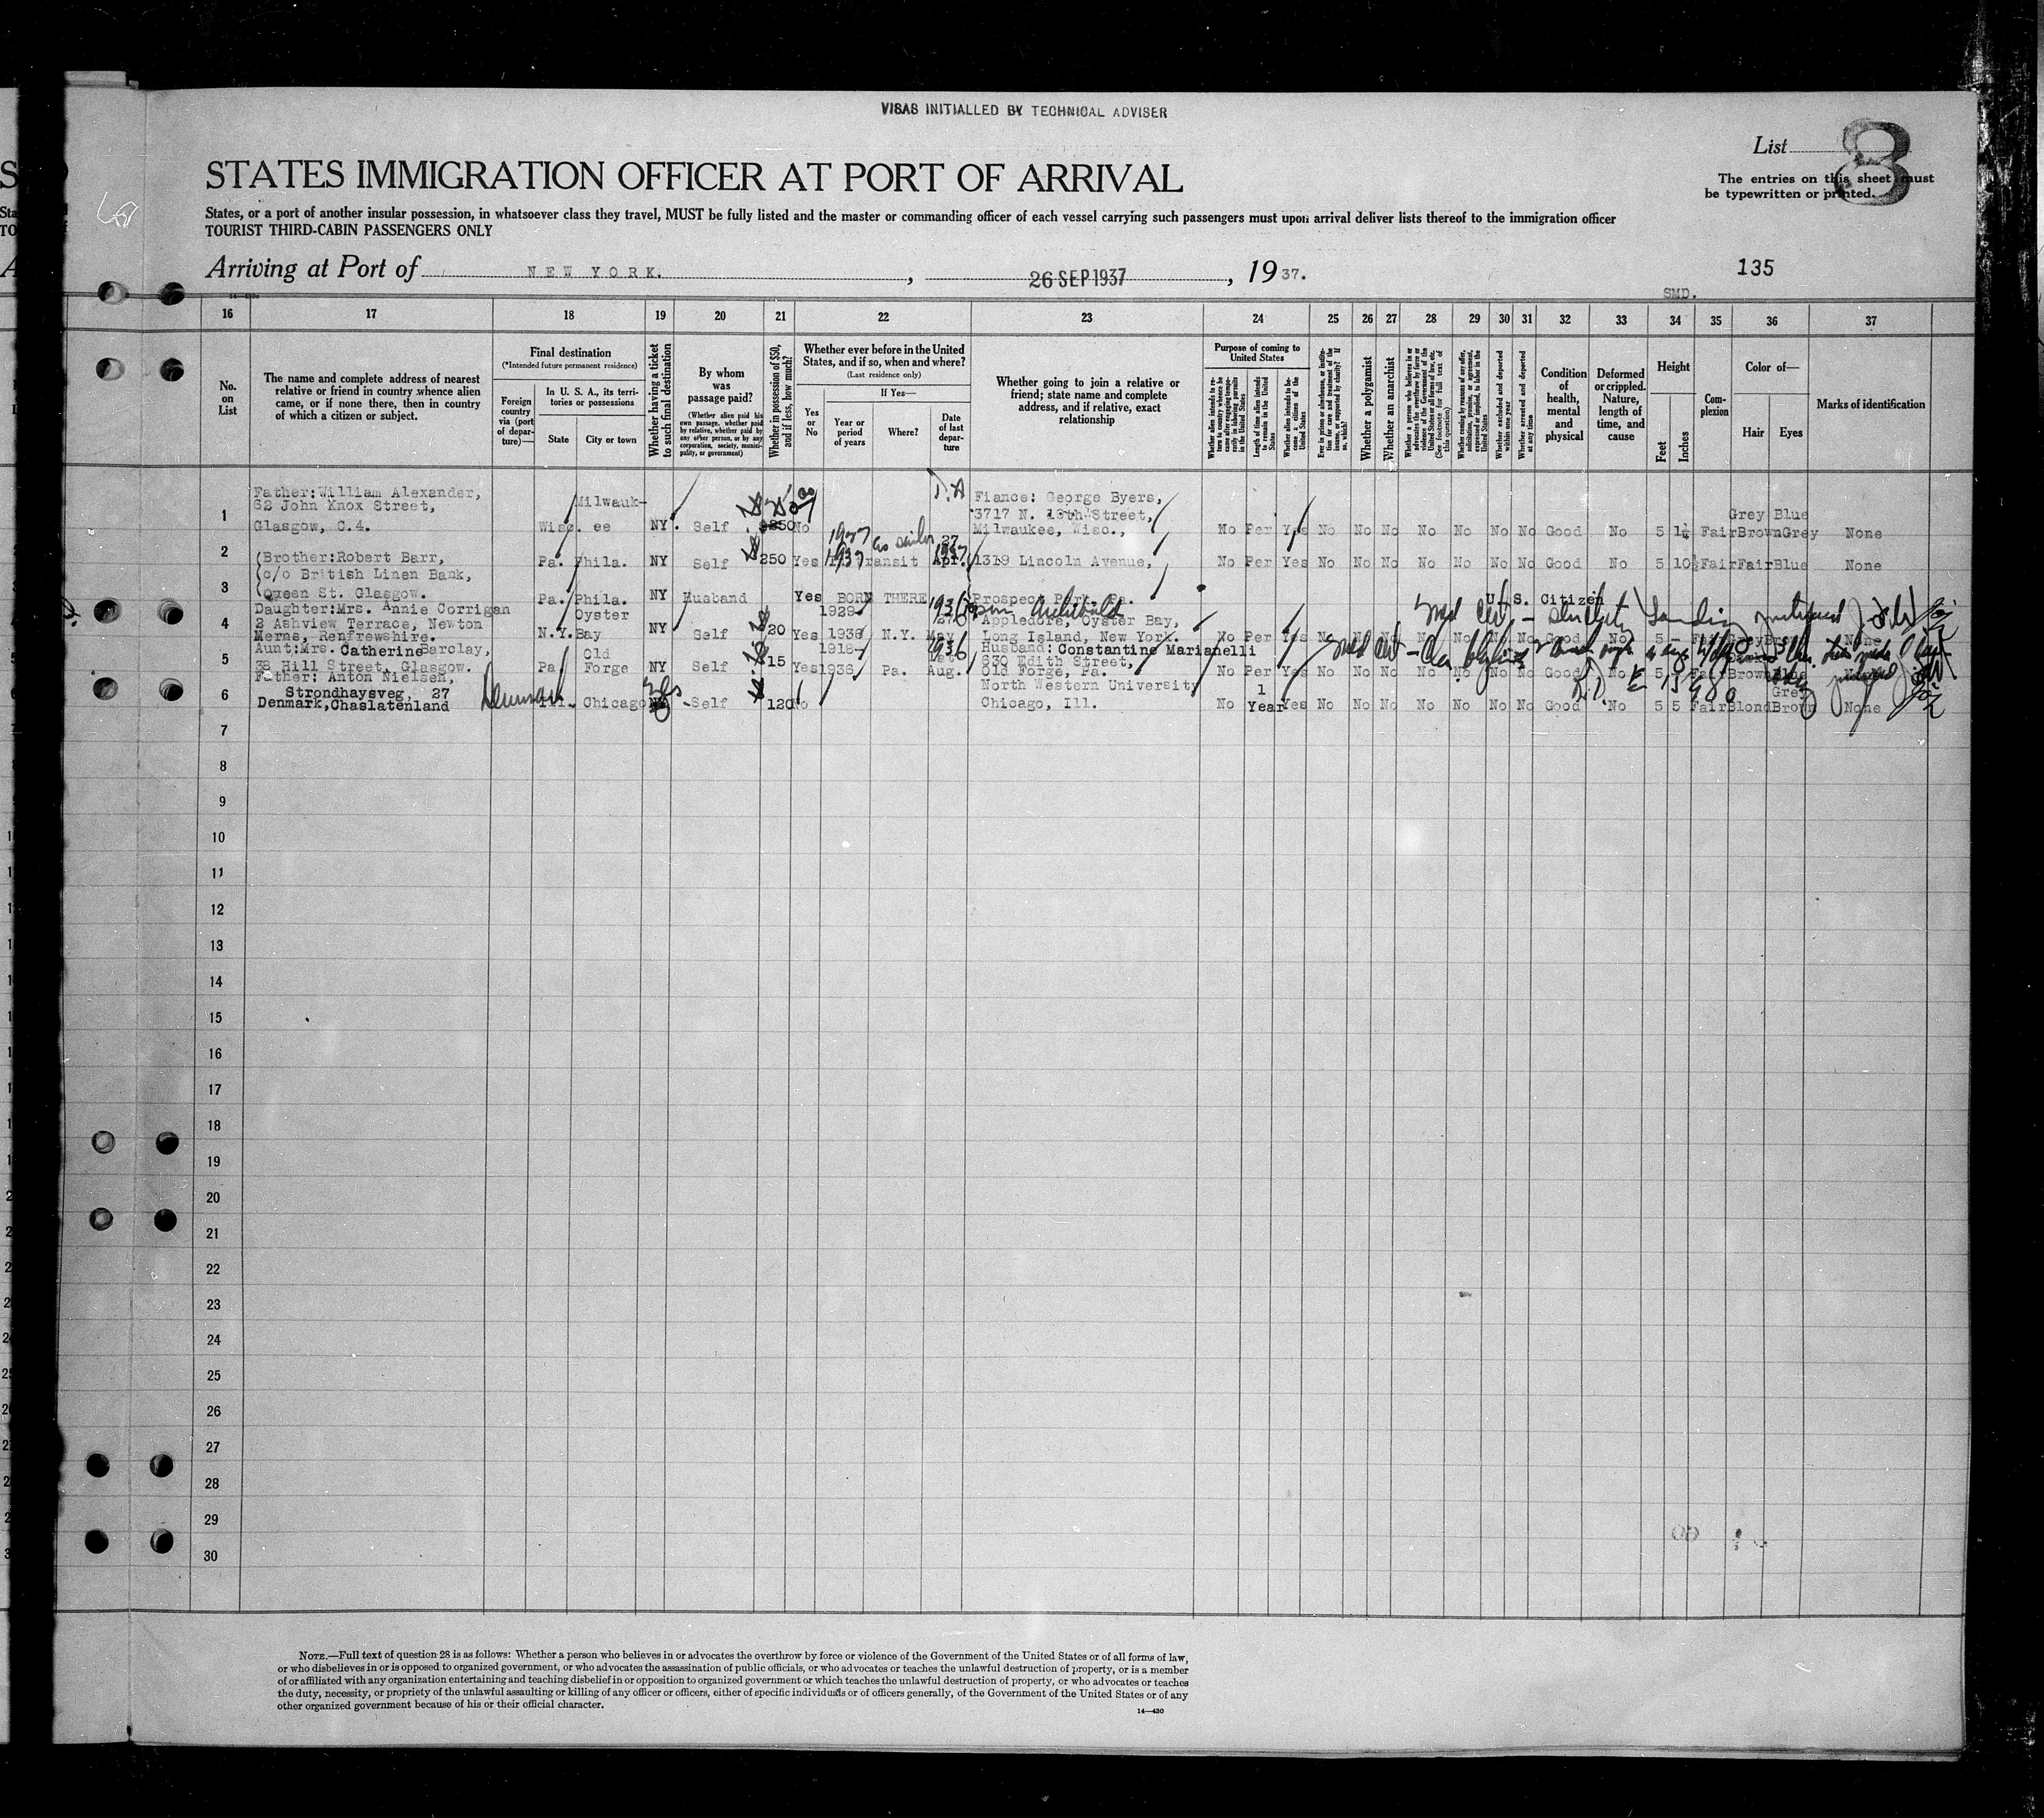 VISAS INITIALLED BY TECHNICAL ADVISER
List 8
STATES IMMIGRATION OFFICER AT PORT OF ARRIVAL
The entries on this sheet must
be typewritten or printed.
States, or a port of another insular possession, in whatsoever class they travel, MUST be fully listed and the master or commanding officer of each vessel carrying such passengers must upon arrival deliver lists thereof to the immigration officer
TOURIST THIRD-CABIN PASSENGERS ONLY
Arriving at Port of NEW YORK. , 26 SEP 1937 , 1937.
135
SMD.
16 17 18 19 20 21 22 23 24 25 26 27 28 29 30 31 32 33 34 35 36 37
No. on List
The name and complete address of nearest
relative or friend in country whence alien
came, or if none there, then in country
of which a citizen or subject.
Final destination
(*Intended future permanent residence)
Foreign country via (port of departure)—
In U. S. A., its territories or possessions
State
City or town
Whether having a ticket to such final destination
By whom was passage paid?
(Whether alien paid his own passage, whether paid by relative, whether paid by any other person, or by any corporation, society, municipality, or government)
Whether in possession of $50, and if less, how much?
Whether ever before in the United States, and if so, when and where?
(Last residence only)
Yes or No
If Yes—
Year or period of years
Where?
Date of last departure
Whether going to join a relative or
friend; state name and complete
address, and if relative, exact
relationship
Purpose of coming to United States
Whether alien intends to return to country whence he came after engaging temporarily in laboring pursuits in the United States
Length of time alien intends to remain in the United States
Whether alien intends to become a citizen of the United States
Ever in prison or almshouse, or institution for care and treatment of the insane, or supported by charity? If so, which?
Whether a polygamist
Whether an anarchist
Whether a person who believes in or advocates the overthrow by force or violence of the Government of the United States or all forms of law, etc. (See footnote for full text of this question)
Whether coming by reason of any offer, solicitation, promise, or agreement, expressed or implied, to labor in the United States
Whether excluded and deported within one year
Whether arrested and deported at any time
Condition of health, mental and physical
Deformed or crippled. Nature, length of time, and cause
Height
Feet
Inches
Complexion
Color of—
Hair
Eyes
Marks of identification
1 Father: William Alexander,
62 John Knox Street,
Glasgow, C.4.
Wisc. Milwauk-ee NY. Self 250 No
Fiance: George Byers,
3717 N. 13th Street,
Milwaukee, Wisc.,
No Per Yes No No No No No No No Good No 5 1½ Fair Grey Brown Blue Grey None
2 (Brother: Robert Barr,
(c/o British Linen Bank,
(Queen St. Glasgow.
Pa. Phila. NY Self 250 Yes 1937 Transit 27 Apr. 1937
1319 Lincoln Avenue,
No Per Yes No No No No No No No Good No 5 10½ Fair Fair Blue None
3 Pa. Phila. NY Husband Yes BORN THERE
Prospect Park, Pa.
U. S. Citizen
4 Daughter: Mrs. Annie Corrigan
2 Ashview Terrace, Newton
Merns, Renfrewshire.
N.Y. Oyster Bay NY Self 20 Yes 1929- 1936 N.Y. May 1936
Archibald
Appledore, Oyster Bay,
Long Island, New York.
No Per Yes No No No No No No No Good No 5 - None
5 Aunt: Mrs. Catherine Barclay,
38 Hill Street, Glasgow.
Pa. Old Forge NY Self 15 Yes 1918- 1936 Pa. Aug. 1936
Husband: Constantino Marianelli
630 Edith Street,
Old Forge, Pa.
No Per Yes No No No No No No No Good No 5 Fair Brown
6 Father: Anton Nielsen,
Strondhaysveg, 27
Denmark, Chaslatenland
Denmark Ill. Chicago Yes Self 120 No
North Western University
Chicago, Ill.
No 1 Year Yes No No No No No No No Good No 5 5 Fair Blond Grey Brown None
7
8
9
10
11
12
13
14
15
16
17
18
19
20
21
22
23
24
25
26
27
28
29
30
NOTE.—Full text of question 28 is as follows: Whether a person who believes in or advocates the overthrow by force or violence of the Government of the United States or of all forms of law,
or who disbelieves in or is opposed to organized government, or who advocates the assassination of public officials, or who advocates or teaches the unlawful destruction of property, or is a member
of or affiliated with any organization entertaining and teaching disbelief in or opposition to organized government or which teaches the unlawful destruction of property, or who advocates or teaches
the duty, necessity, or propriety of the unlawful assaulting or killing of any officer or officers, either of specific individuals or of officers generally, of the Government of the United States or of any
other organized government because of his or their official character.
14—430